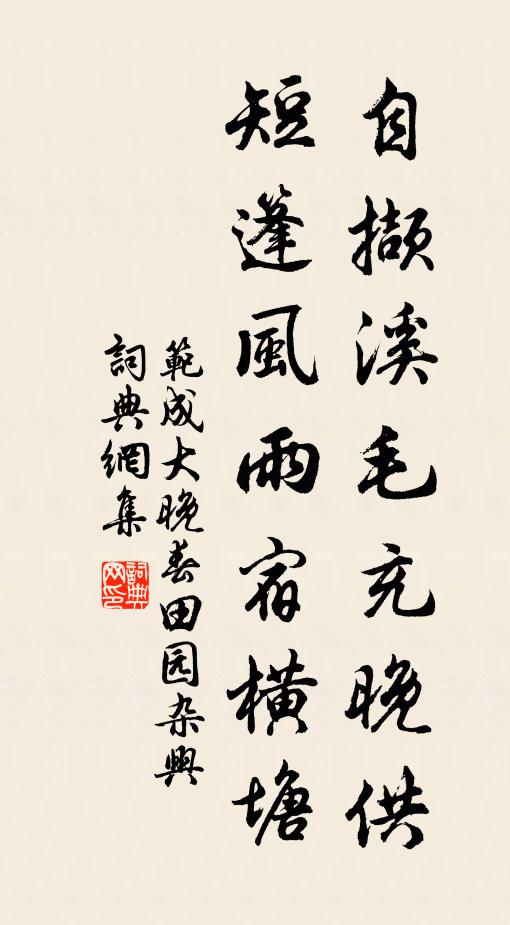 自擷溪毛充晚供
短篷風雨宿橫塘
範成大晚春田园杂興
詞典網集
詞典
网印